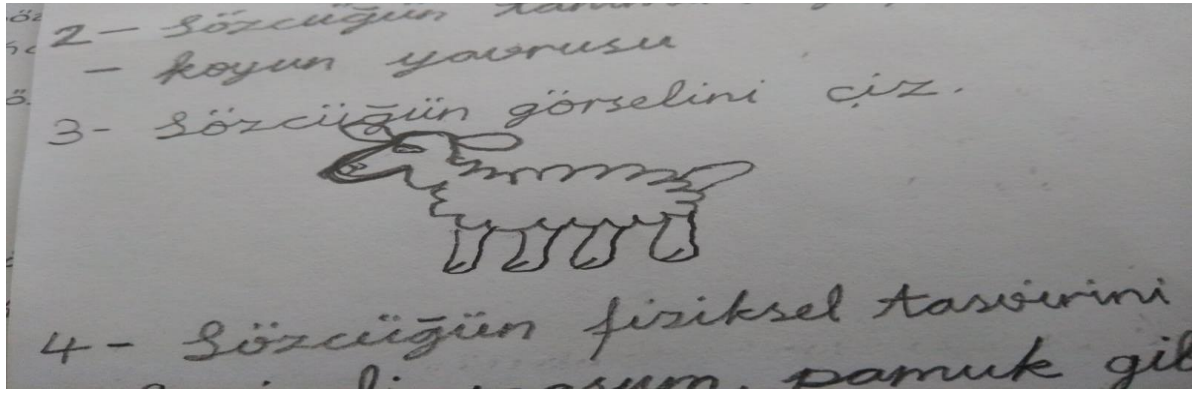 2- Sözcüğün
- koyun yavrusu
3- Sözcüğün görselini çiz.
4- Sözcüğün fiziksel tasvirini
pamuk gib